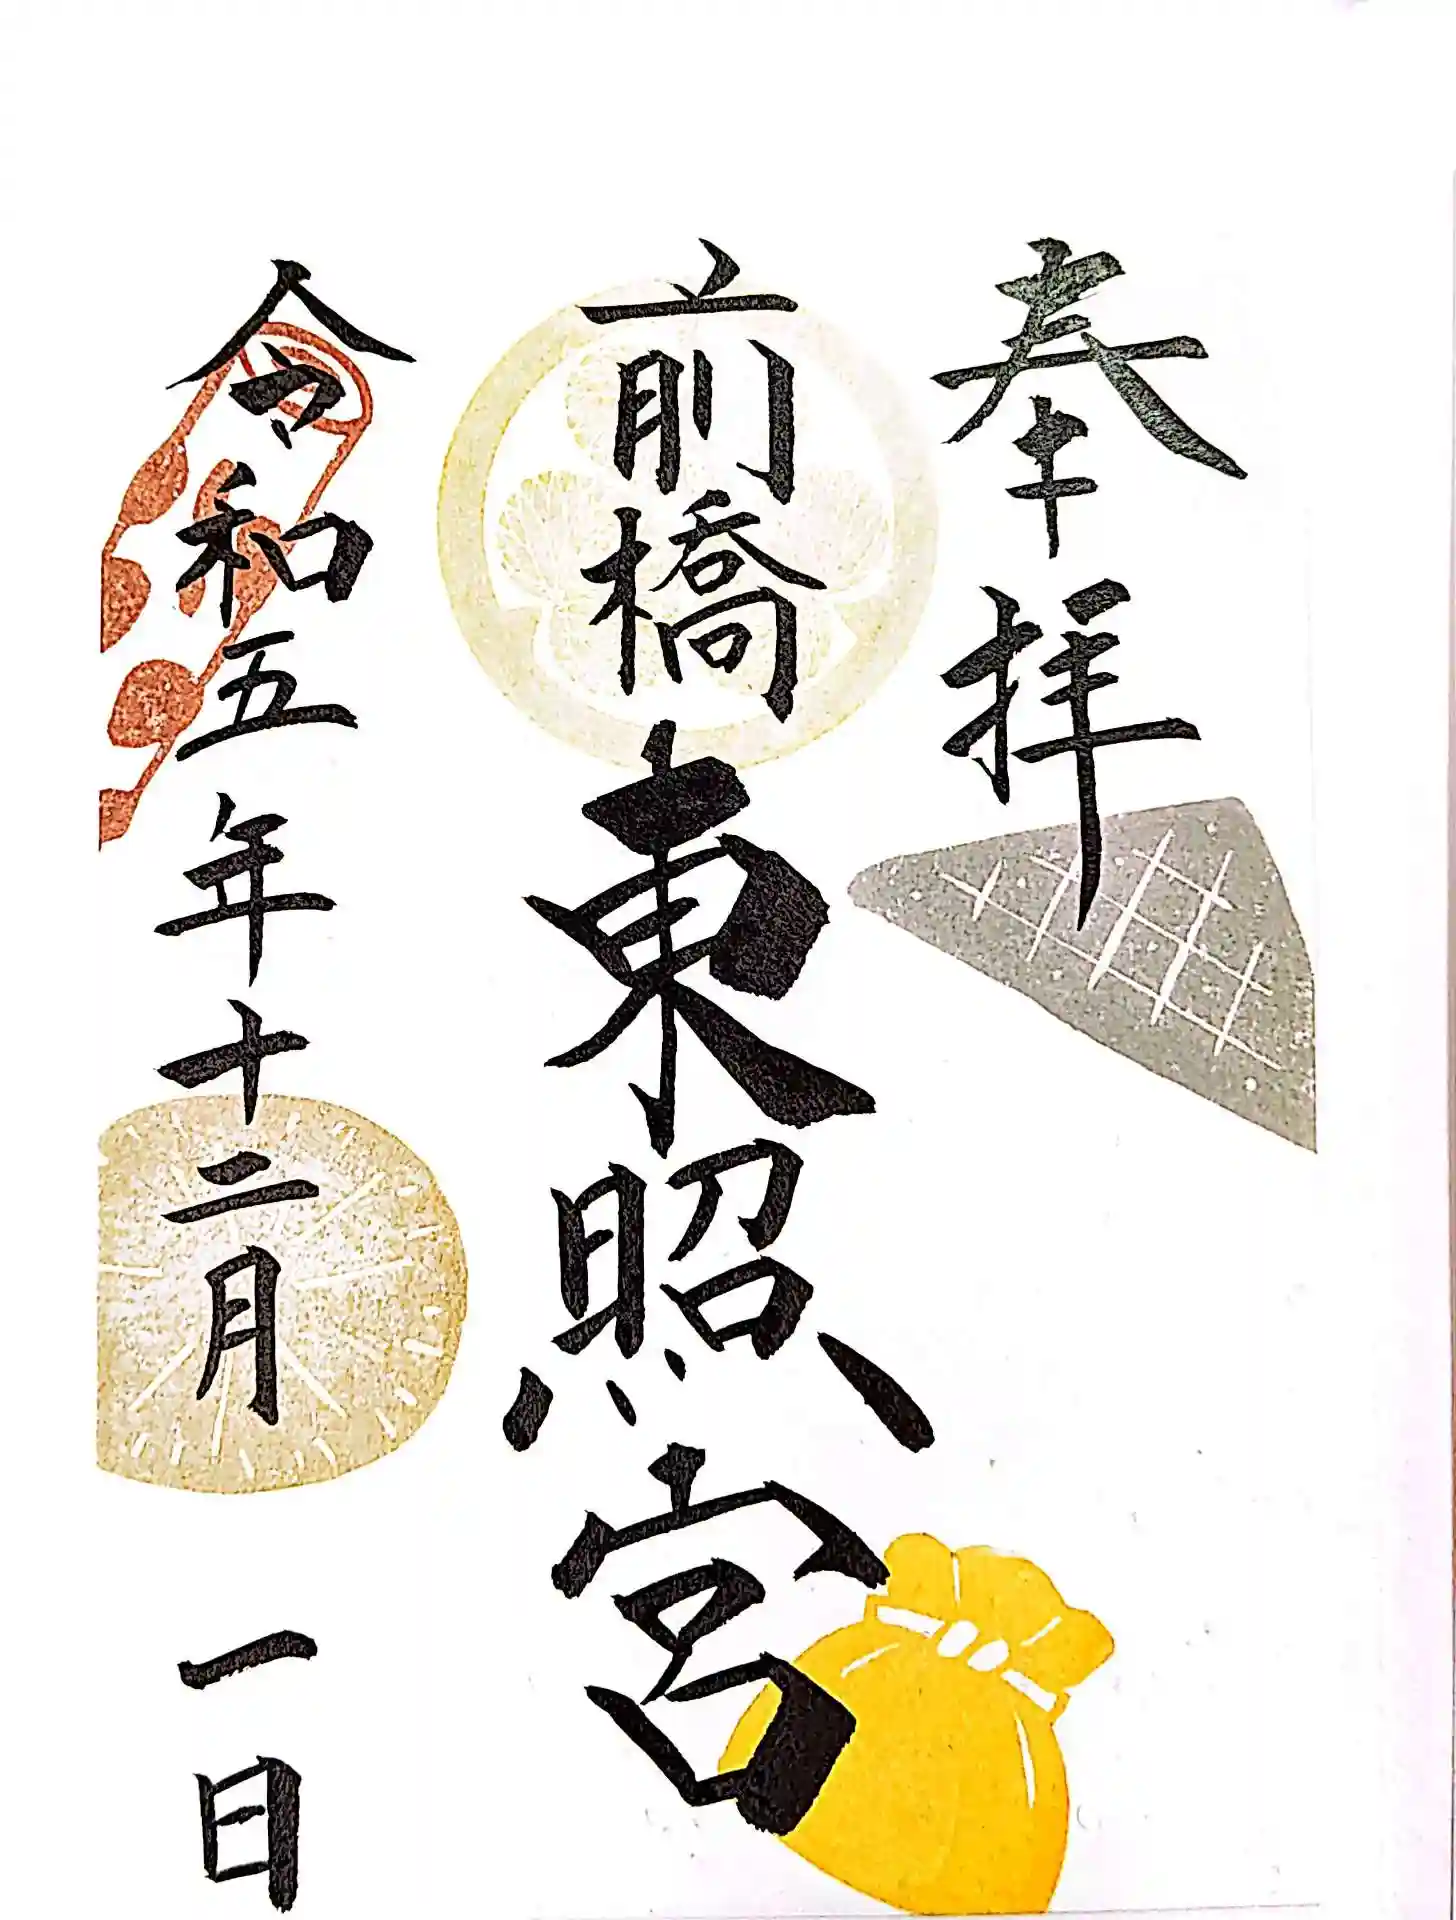 奉拝
前橋東照宮
令和五年十二月一日